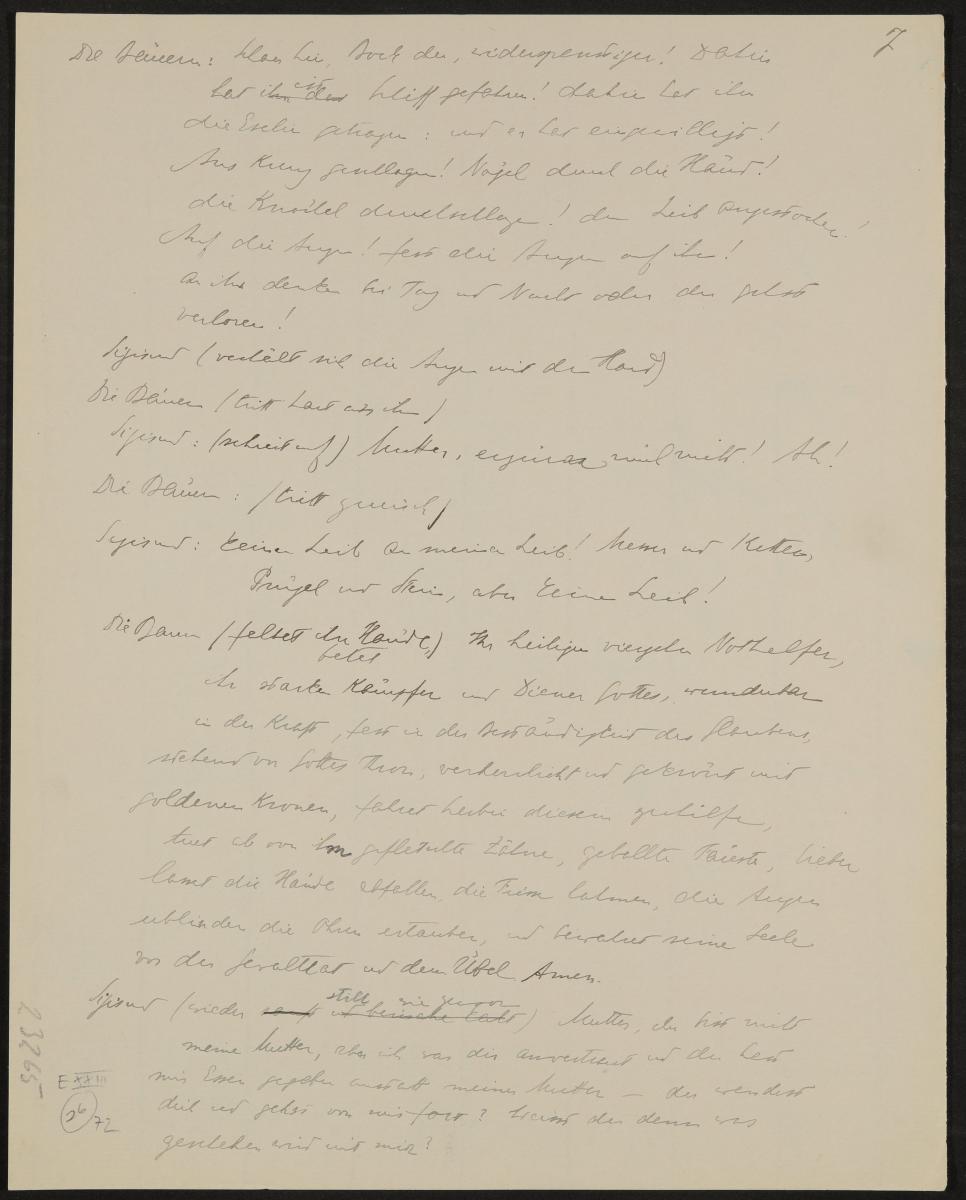 7
Die Bäuerin: schau hin, Bock du, widerspenstiger! Dahin
hat ihn das Schiff gefahren! dahin hat ihn
die Eselin getragen: und er hat eingewilligt!
Ans Kreuz geschlagen! Nägel durch die Händ!
die Knöchel durchschlagen! den Leib angestochen!
Auf die Augen! fest die Augen auf ihn!
an ihn denken bei Tag und Nacht oder du gehst
verloren!
Sigismund (verhält sich die Augen mit der Hand)
Die Bäuerin (tritt hart an ihn)
Sigismund: (schreit auf) Mutter, mich nicht! Ah!
Die Bäuerin: (tritt zurück)
Sigismund: keinen Leib an meinen Leib! Messer und Ketten,
Prügel und Stein, aber keinen Leib!
Die Bäuerin (faltet die Hände,) Ihr heiligen vierzehn Nothelfer,
betet
ihr starken Kämpfer und Diener Gottes, wunderbar
in der Kraft, fest in der Beständigkeit des Glaubens,
stehend vor Gottes Thron, verherrlicht und gekrönt mit
goldenen Kronen, fahret herbei diesem zuhilfe,
tuet ab von ihm gefletschte Zähne, geballte Fäuste, lieber
lasset die Hände abfallen, die Füsse lahmen, die Augen
erblinden die Ohren ertauben, und bewahret seine Seele
vor der Gewalttat und dem Übel Amen.
still wie zuvor
Sigismund (wieder) Mutter, du bist nicht
meine Mutter, aber ich war dir anvertraut und du hast
mir Essen gegeben anstatt meiner Mutter – du wendest
dich und gehst von mir fort? Weisst du denn was
geschehen wird mit mir?
E XXIII
26
72
23265